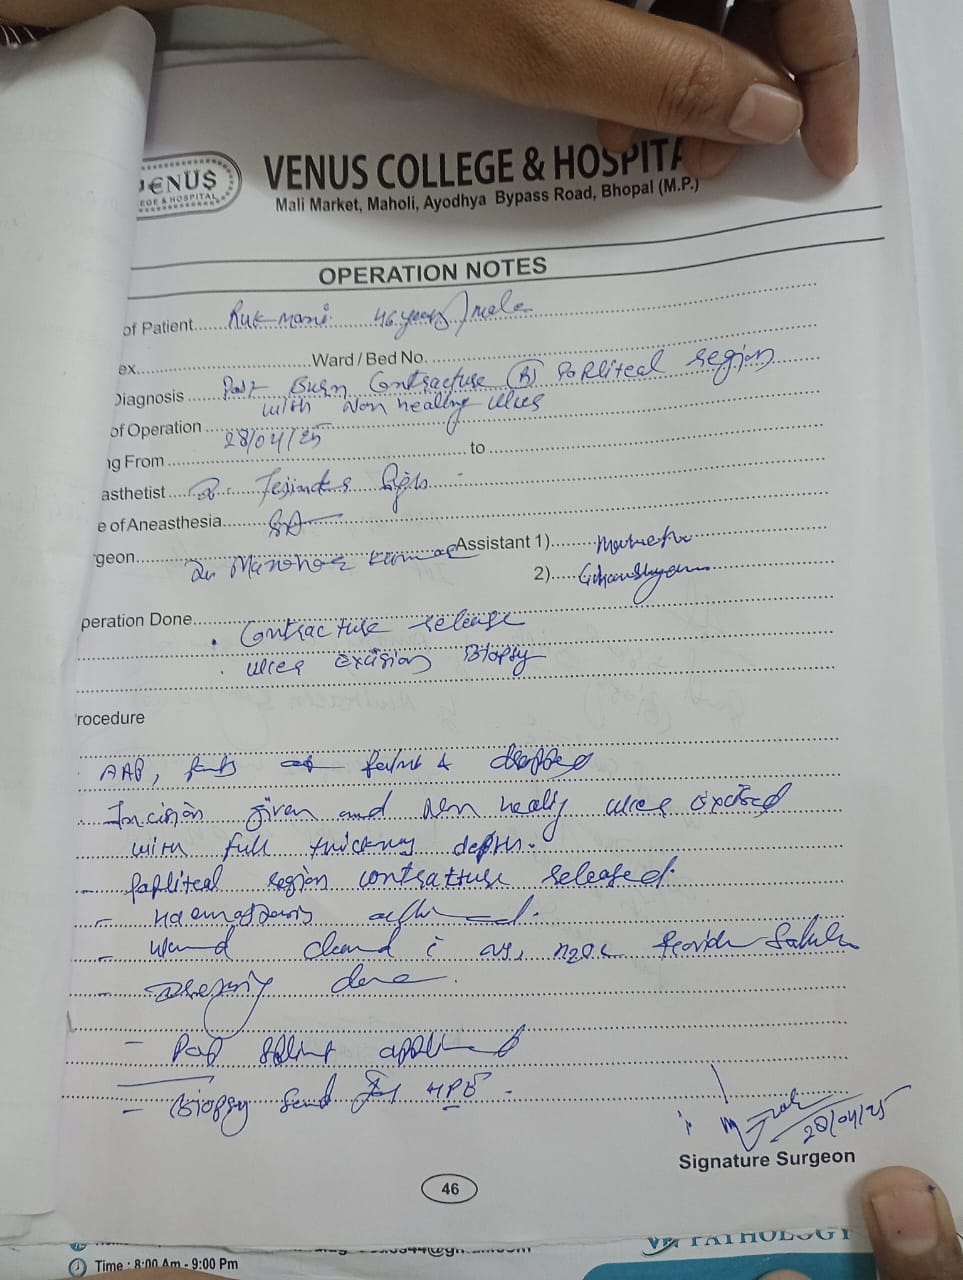 VENUS
EGE & HOSPITAL
VENUS COLLEGE & HOSPITA
Mali Market, Maholi, Ayodhya Bypass Road, Bhopal (M.P.)
OPERATION NOTES
of Patient Rukmani 46 years / male
ex. Ward / Bed No.
Diagnosis Post Burn Contracture (B) Popliteal region
with Non healing ulcer
of Operation 28/04/25
ng From to
asthetist Dr. Singh
e of Aneasthesia SA
geon Dr Manohar Kumar Assistant 1)
2) Ghanshyam
peration Done
Contracture release
ulcer excision Biopsy
rocedure
AAP, parts painted & drapped
Incision given and non healy ulcer excised
with full thickness depth.
- Popliteal region contracture released.
- Haemostasis achieved.
- Wound cleaned c NS, H2O2
- Dressing done.
- Pop splint applied
- Biopsy send for HPE.
28/04/25
Signature Surgeon
46
Time : 8:00 Am - 9:00 Pm
PATHOLOGY